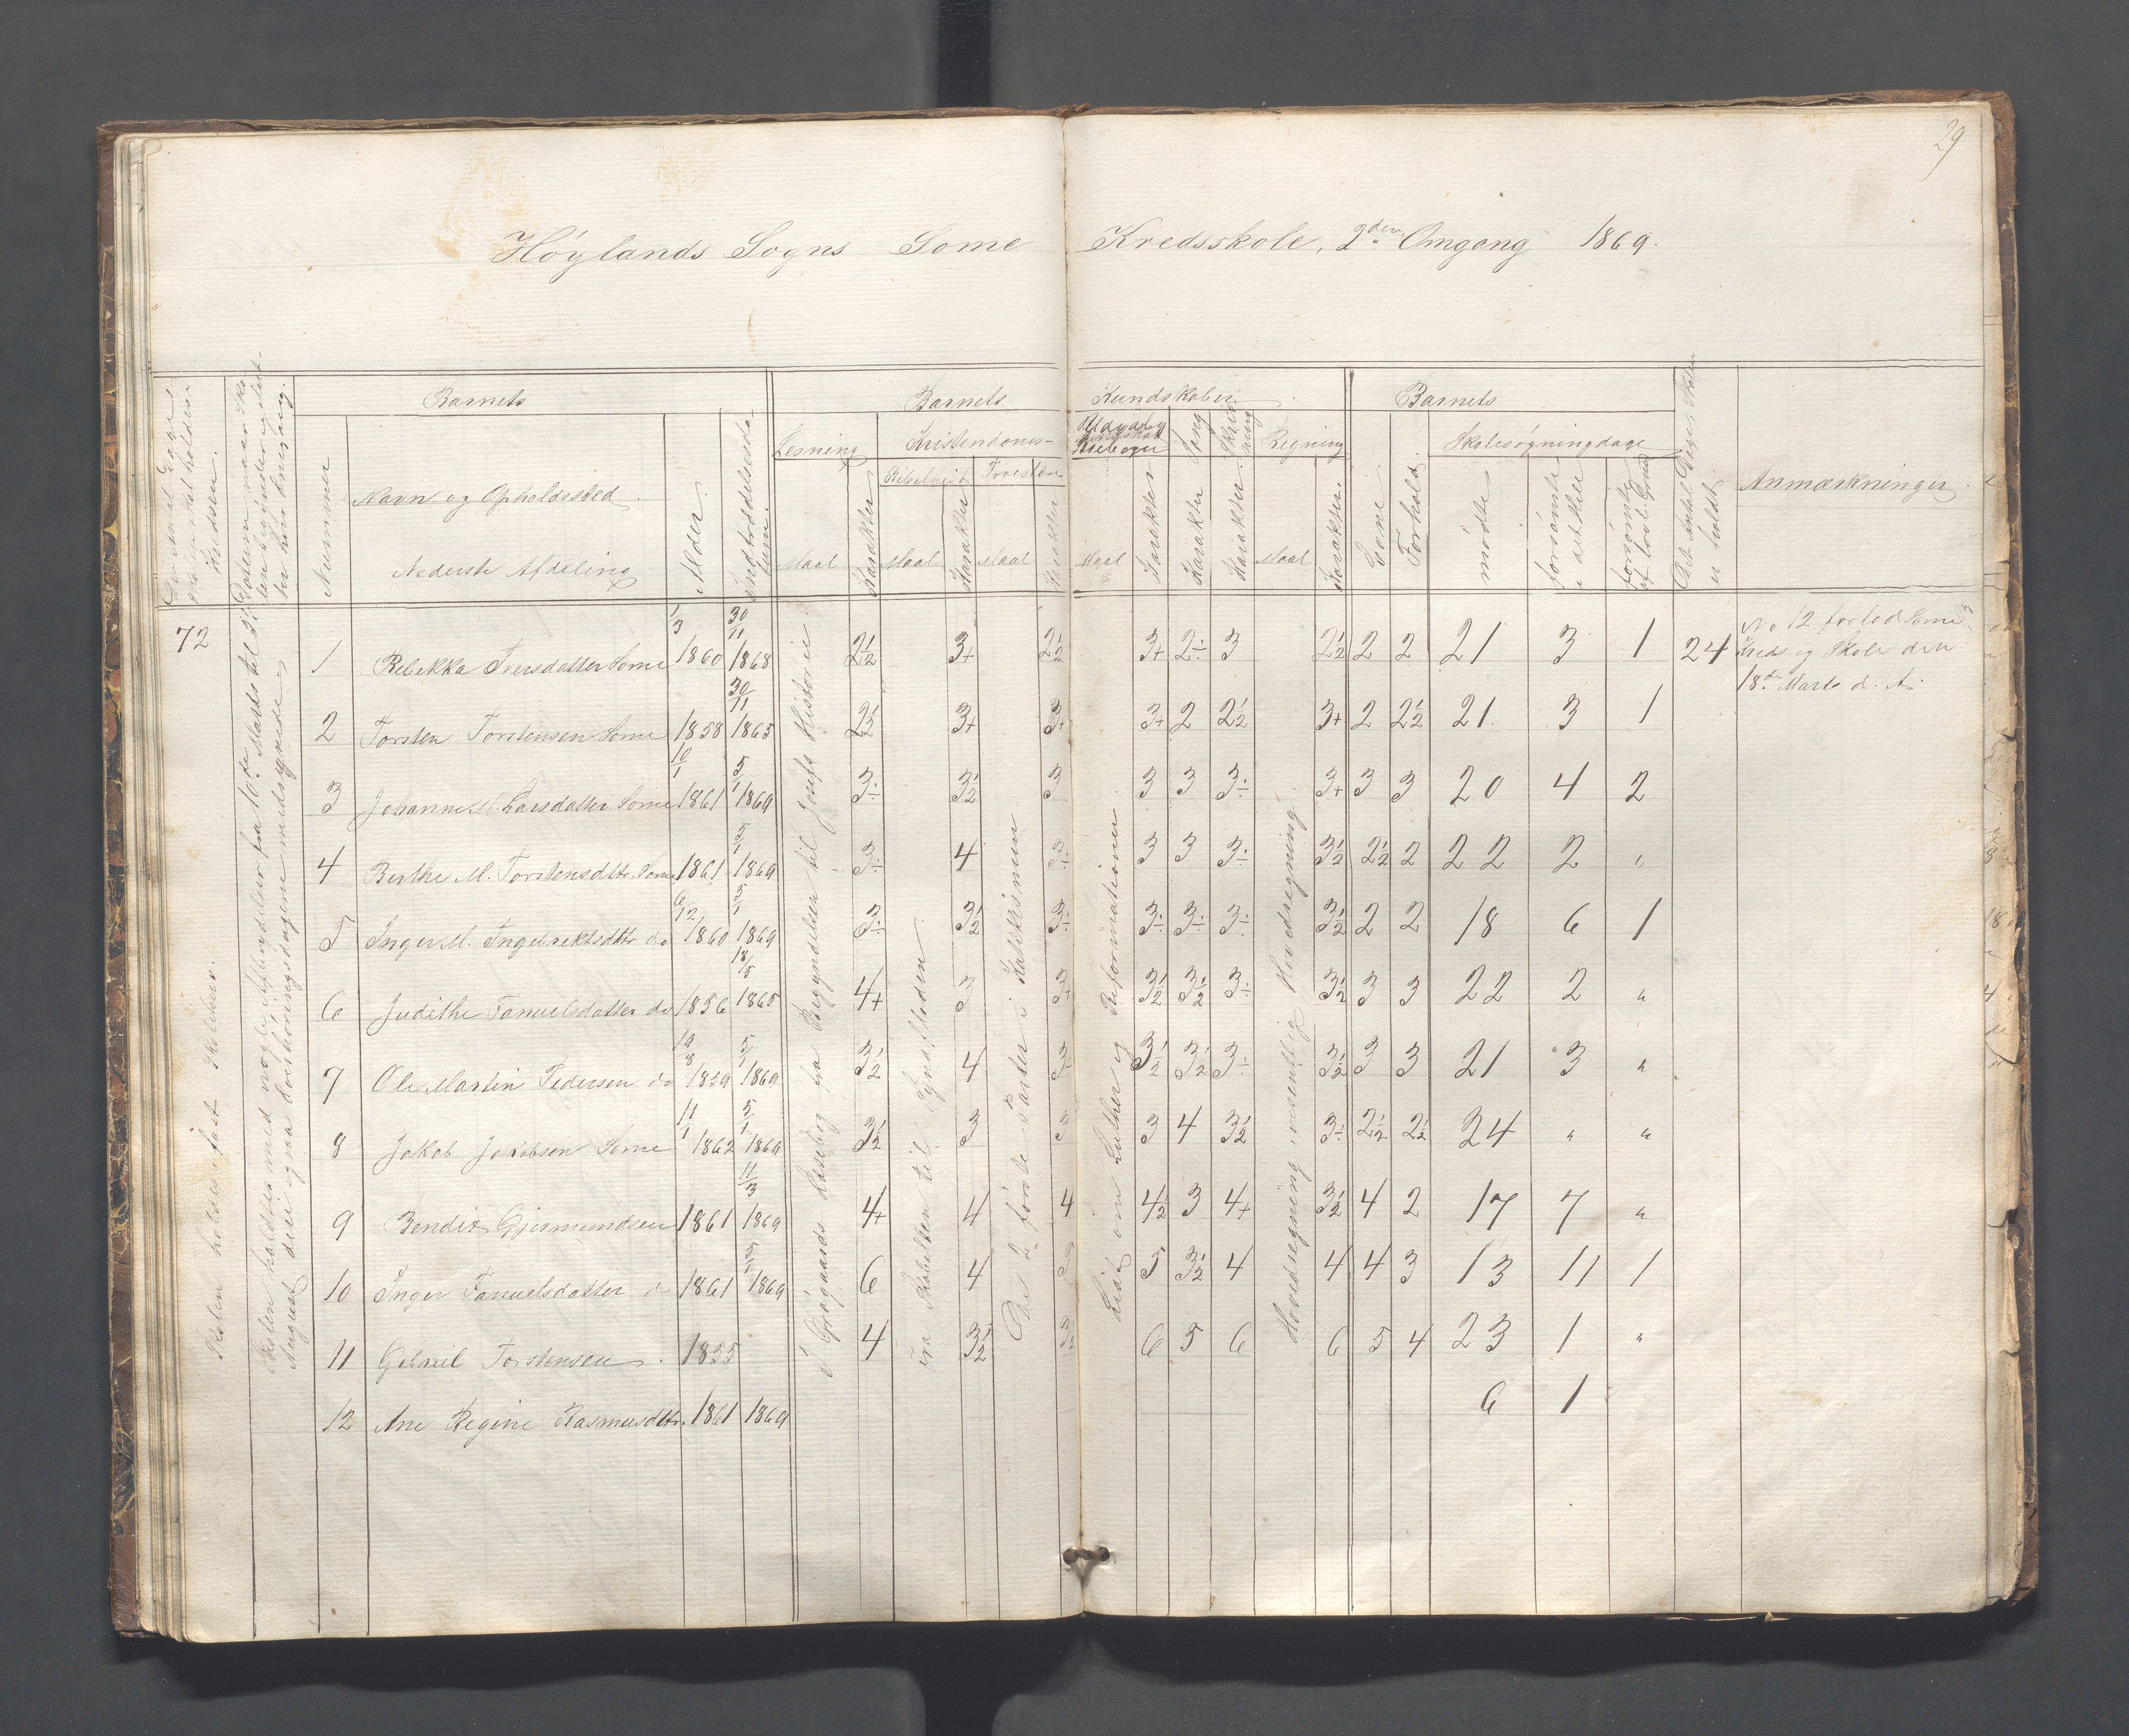 29
Høylands Sogns Some Kredsskole, 2den Omgang 1869.
Barnets Barnets Kundskaber. Barnets
Nummer
Navn og Opholdssted.
Nederste Afdeling
Alder.
Indtrædelsesdatum.
Læsning Kristendoms-
Bibelhist. Troeslære
Maal Karakter Maal Karakter Maal Karakter
Maal Karakter
Sang Karakter
Skrivning Karakter
Regning Maal Karakter.
Evne. Forhold.
Skolesøgningdage
mødte forsømte i det Hele forsømte af lovl. Grund
Det Antal Dage Skolen er holdt.
Anmærkninger.
72
Skolen holdes i fast Skolehus.
Skolen holdtes med nogle Afbrydelser fra 10de Marts til
August
i Grøgaards Læsebog fra Begyndelsen til Josefs Historie.
Fra Skabelsen til Syndfloden.
De 2 første Parter i Katekismum
Lidt om Luther og Reformationen.
Hovedregning
1 Rebekka Iversdatter Some 1/3 1860 30/11 1868 2½ 3+ 2½ 3+ 2÷ 3 2½ 2 2 21 3 1 24
No 12 forlod Some
Kreds og Skole den
18de Marts d. A.
2 Torsten Torstensen Some 1858 30/11 1865 2½ 3+ 3+ 3+ 2 2½ 3+ 2 2½ 21 3 1
3 Johanne M. Larsdatter Some 10/1 1861 5/1 1869 3÷ 3½ 3 3 3 3÷ 3+ 3 3 20 4 2
4 Berthe M. Torstensdtr. Some 1861 5/1 1869 3÷ 4 3÷ 3 3 3÷ 3½ 2½ 2 22 2 "
5 Inger M. Ingebrektsdttr do 6/12 1860 5/1 1869 3÷ 3½ 3÷ 3÷ 3÷ 3÷ 3½ 2 2 18 6 1
6 Judithe Tanuelsdatter do 1856 18/5 1865 4+ 3 3+ 3½ 3½ 3÷ 3½ 3 3 22 2 "
7 Ole Martin Pedersen do 19/8 1859 5/1 1869 3½ 4 3÷ 3½ 3½ 3÷ 3½ 3 3 21 3 "
8 Jakob Jakobsen Some 11/1 1862 5/1 1869 3½ 3 3 3 4 3½ 3÷ 2½ 2½ 24 " "
9 Bendix Gjermundsen 1861 11/3 1869 4+ 4 4 4½ 3 4+ 3½ 4 2 17 7 "
10 Inger Tanuelsdatter do 1861 5/1 1869 6 4 5 5 3½ 4 4 4 3 13 11 1
11 Gabriel Torstensen. 1855 4 3½ 3½ 6 5 6 6 5 4 23 1 "
12 Ane Regine Rasmusdttr. 1861 1869 6 1